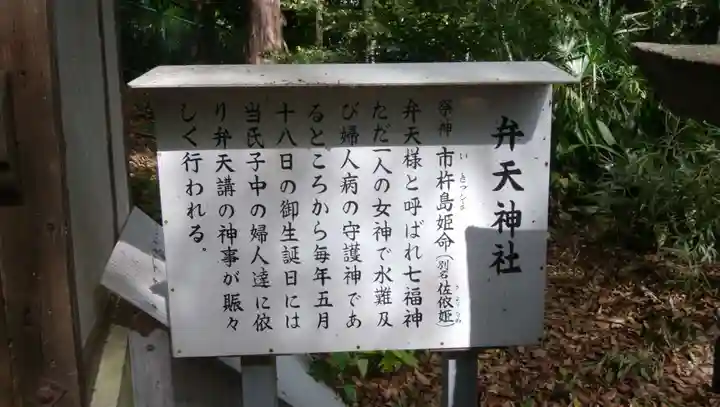 弁天神社
祭神 市杵島姫命(別名佐依姫)
弁天様と呼ばれ七福神
ただ一人の女神で水難及
び婦人病の守護神であ
るところから毎年五月
十八日の御生誕日には
当氏子中の婦人達に依
り弁天講の神事が賑々
しく行われる。